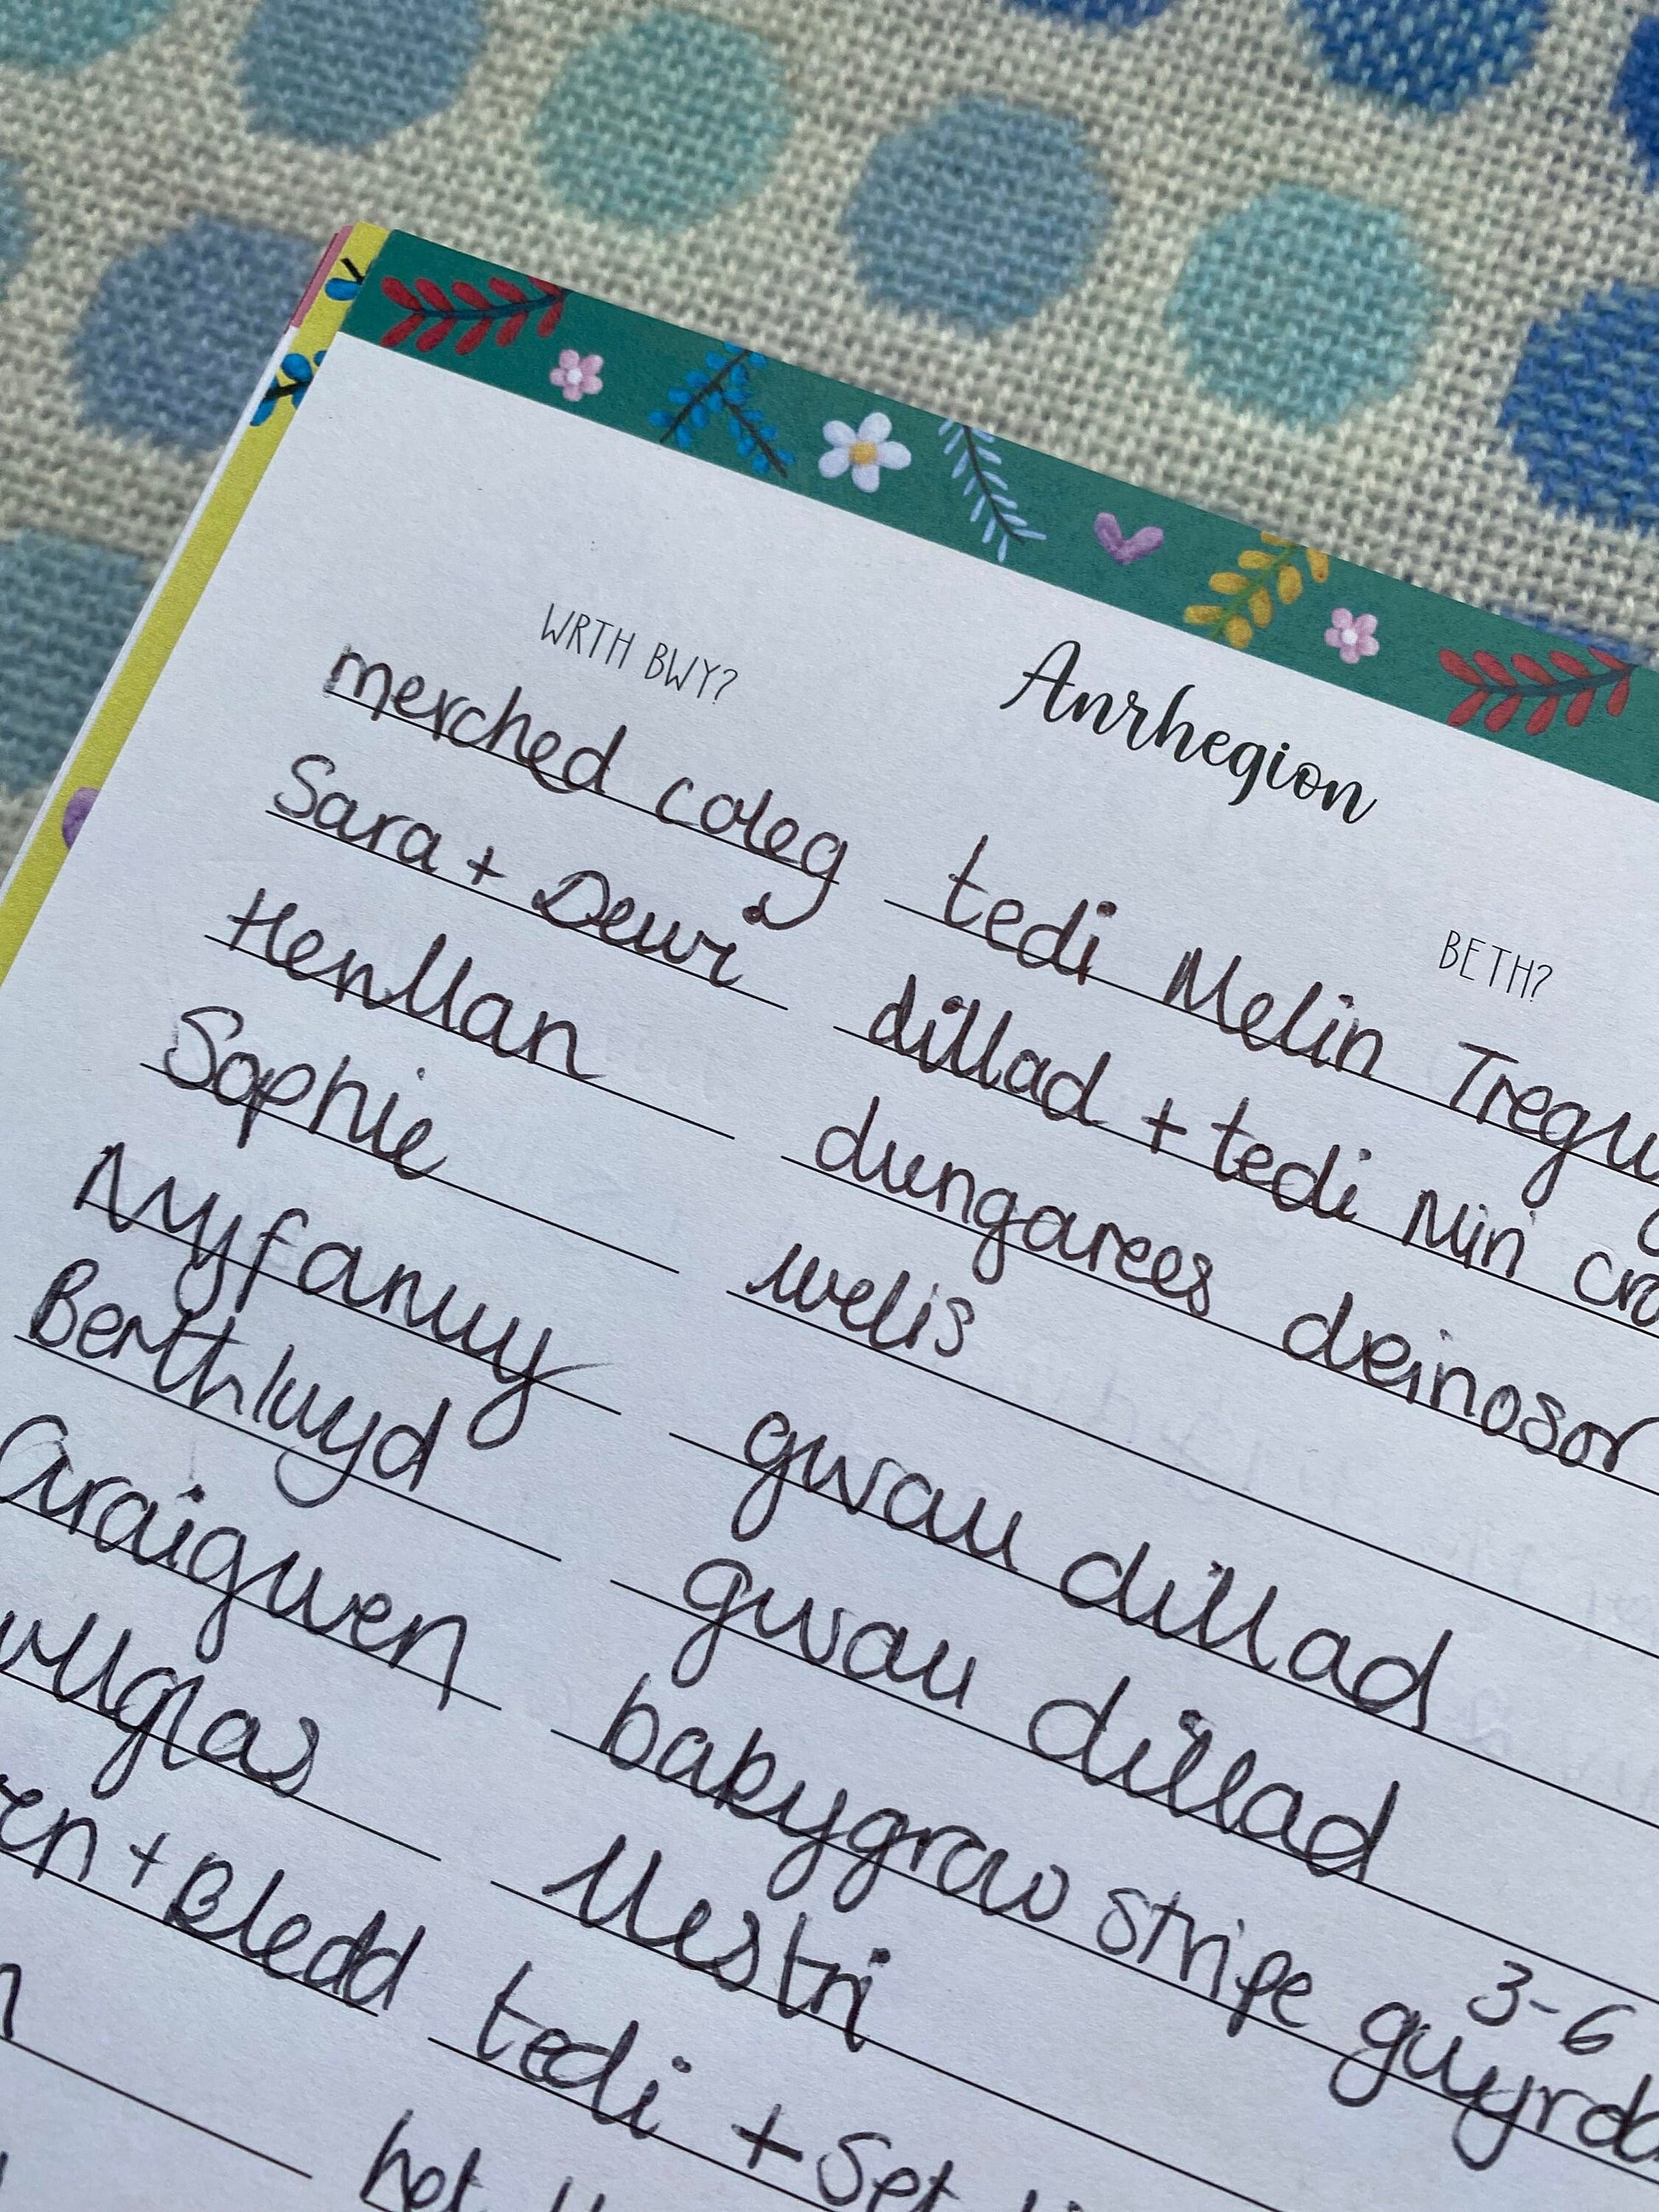 Anrhegion
WRTH BWY? BETH?
merched coleg tedi Melin Tregw
Sara + Dewi dillad + tedi Min cro
Henllan dungarees deinosor
Sophie welis
Nyfanwy gwau dillad
Berthlwyd gwau dillad
Araigwen babygrow stripe gwyrdd 3-6
wllglas llestri
en + Bledd tedi + Set
hot